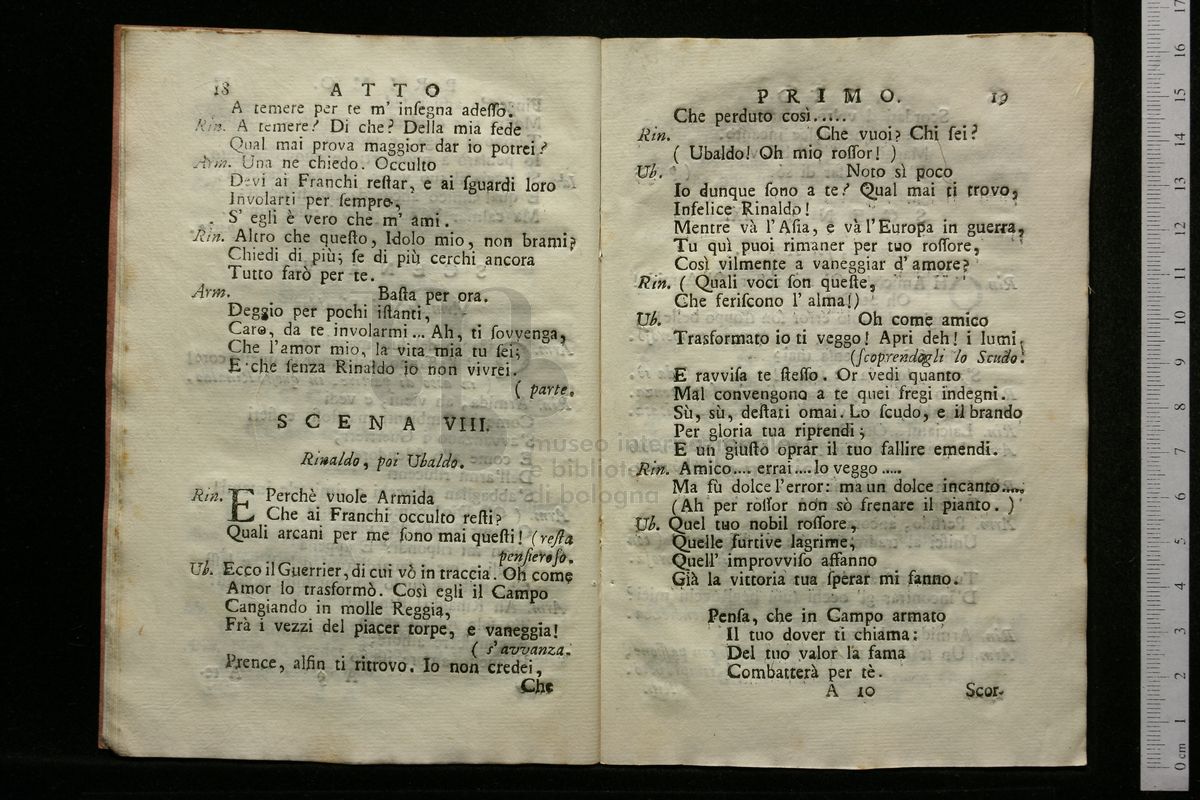 18 ATTO
A temere per te m' inſegna adeſſo.
Rin. A temere? Di che? Della mia fede
Qual mai prova maggior dar io potrei?
Arm. Una ne chiedo. Occulto
Devi ai Franchi reſtar, e ai ſguardi loro
Involarti per ſempre,
S' egli è vero che m' ami.
Rin. Altro che queſto, Idolo mio, non brami?
Chiedi di più; ſe di più cerchi ancora
Tutto farò per te.
Arm. Baſta per ora.
Deggio per pochi iſtanti,
Caro, da te involarmi... Ah, ti ſovvenga,
Che l'amor mio, la vita mia tu ſei;
E che ſenza Rinaldo io non vivrei.
( parte.
SCENA VIII.
Rinaldo, poi Ubaldo.
Rin. E Perchè vuole Armida
Che ai Franchi occulto reſti?
Quali arcani per me ſono mai queſti! (reſta
penſieroſo.
Ub. Ecco il Guerrier, di cui vò in traccia. Oh come
Amor lo trasformò. Così egli il Campo
Cangiando in molle Reggia,
Frà i vezzi del piacer torpe, e vaneggia!
( s'avvanza.
Prence, alfin ti ritrovo. Io non credei,
Che
PRIMO. 19
Che perduto così.....
Rin. Che vuoi? Chi ſei?
( Ubaldo! Oh mio roſſor! )
Ub. Noto sì poco
Io dunque ſono a te? Qual mai ti trovo,
Infelice Rinaldo!
Mentre và l'Aſia, e và l'Europa in guerra,
Tu quì puoi rimaner per tuo roſſore,
Così vilmente a vaneggiar d'amore?
Rin. ( Quali voci ſon queſte,
Che feriſcono l'alma!)
Ub. Oh come amico
Trasformato io ti veggo! Apri deh! i lumi,
(ſcoprendogli lo Scudo.
E ravviſa te ſteſſo. Or vedi quanto
Mal convengono a te quei fregi indegni.
Sù, sù, deſtati omai. Lo ſcudo, e il brando
Per gloria tua riprendi;
E un giuſto oprar il tuo fallire emendi.
Rin. Amico.... errai....lo veggo.....
Ma fù dolce l'error: ma un dolce incanto....
(Ah per roſſor non sò frenare il pianto. )
Ub. Quel tuo nobil roſſore,
Quelle furtive lagrime,
Quell' improvviſo affanno
Già la vittoria tua ſperar mi fanno.
Penſa, che in Campo armato
Il tuo dover ti chiama:
Del tuo valor la fama
Combatterà per tè.
A 10 Scor-
museo internazionale
e biblioteca
di bologna
0 cm 1 2 3 4 5 6 7 8 9 10 11 12 13 14 15 16 17